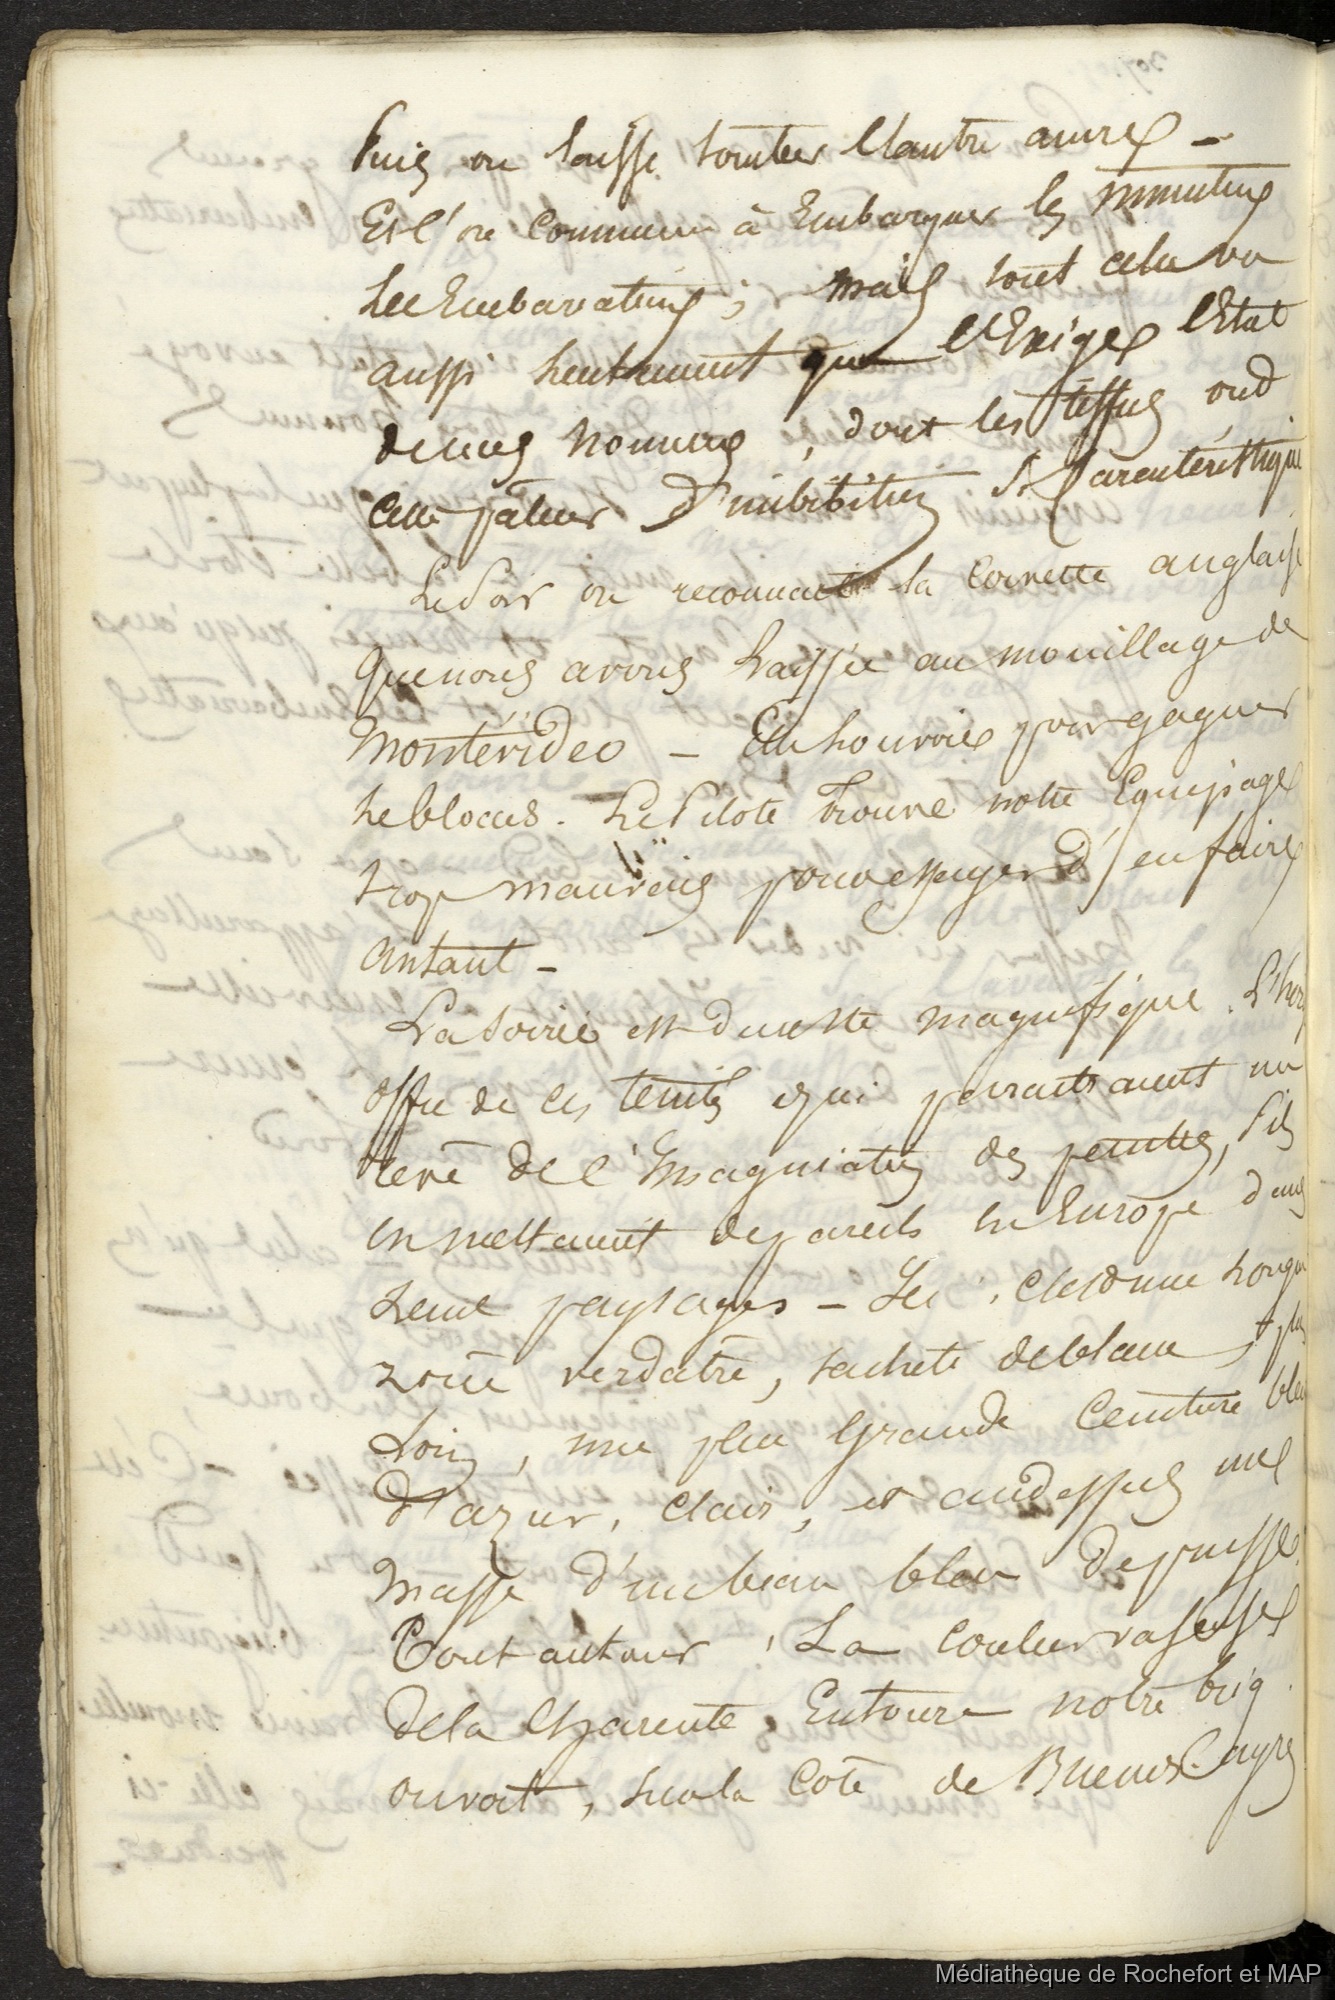 Puis on laisse tomber l'autre ancre –
Et l'on commence à Embarquer les munitions
les Embarcations ; mais tout cela va
aussi lentement que l'Exige l'Etat
de nos hommes, dont les tissus ont
cette pâleur d'imbibition si Caractéristique
Le soir on reconnait la Corvette anglaise
que nous avons laissée au mouillage de
Montévideo – Elle louvoie pour gagner
le blocus. Le Pilote trouve notre Equipage
trop mauvais pour essayer d'en faire
autant –
La soirée est du reste magnifique. L'hori
offre de ces teintes qui paraitraient un
rêve de l'Imagination des peintres, s'ils
en mettaient de pareils en Europe dans
leurs paysages – Ici, c'est une longue
zône verdatre, tacheté de blanc, plus
Loin, une plus Grande Ceinture bleu
d'azur, clair, et au dessus une
masse d'un beau bleu de prusse.
Tout autour, La couleur vaseuse
de la Charente Entoure notre brig.
on voit, sur la Côte de Buenos-ayres
Médiathèque de Rochefort et MAP